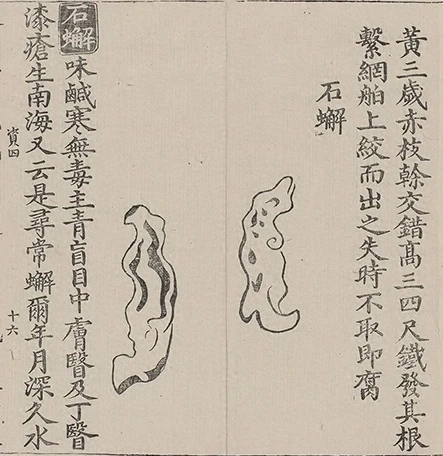 黃三歲赤枝幹交錯高三四尺鐵發其根
繫網舶上絞而出之失時不取即腐
石蠏
石蠏味鹹寒無毒主青盲目中膚瞖及丁瞖
漆瘡生南海又云是尋常蠏爾年月深久水
十六